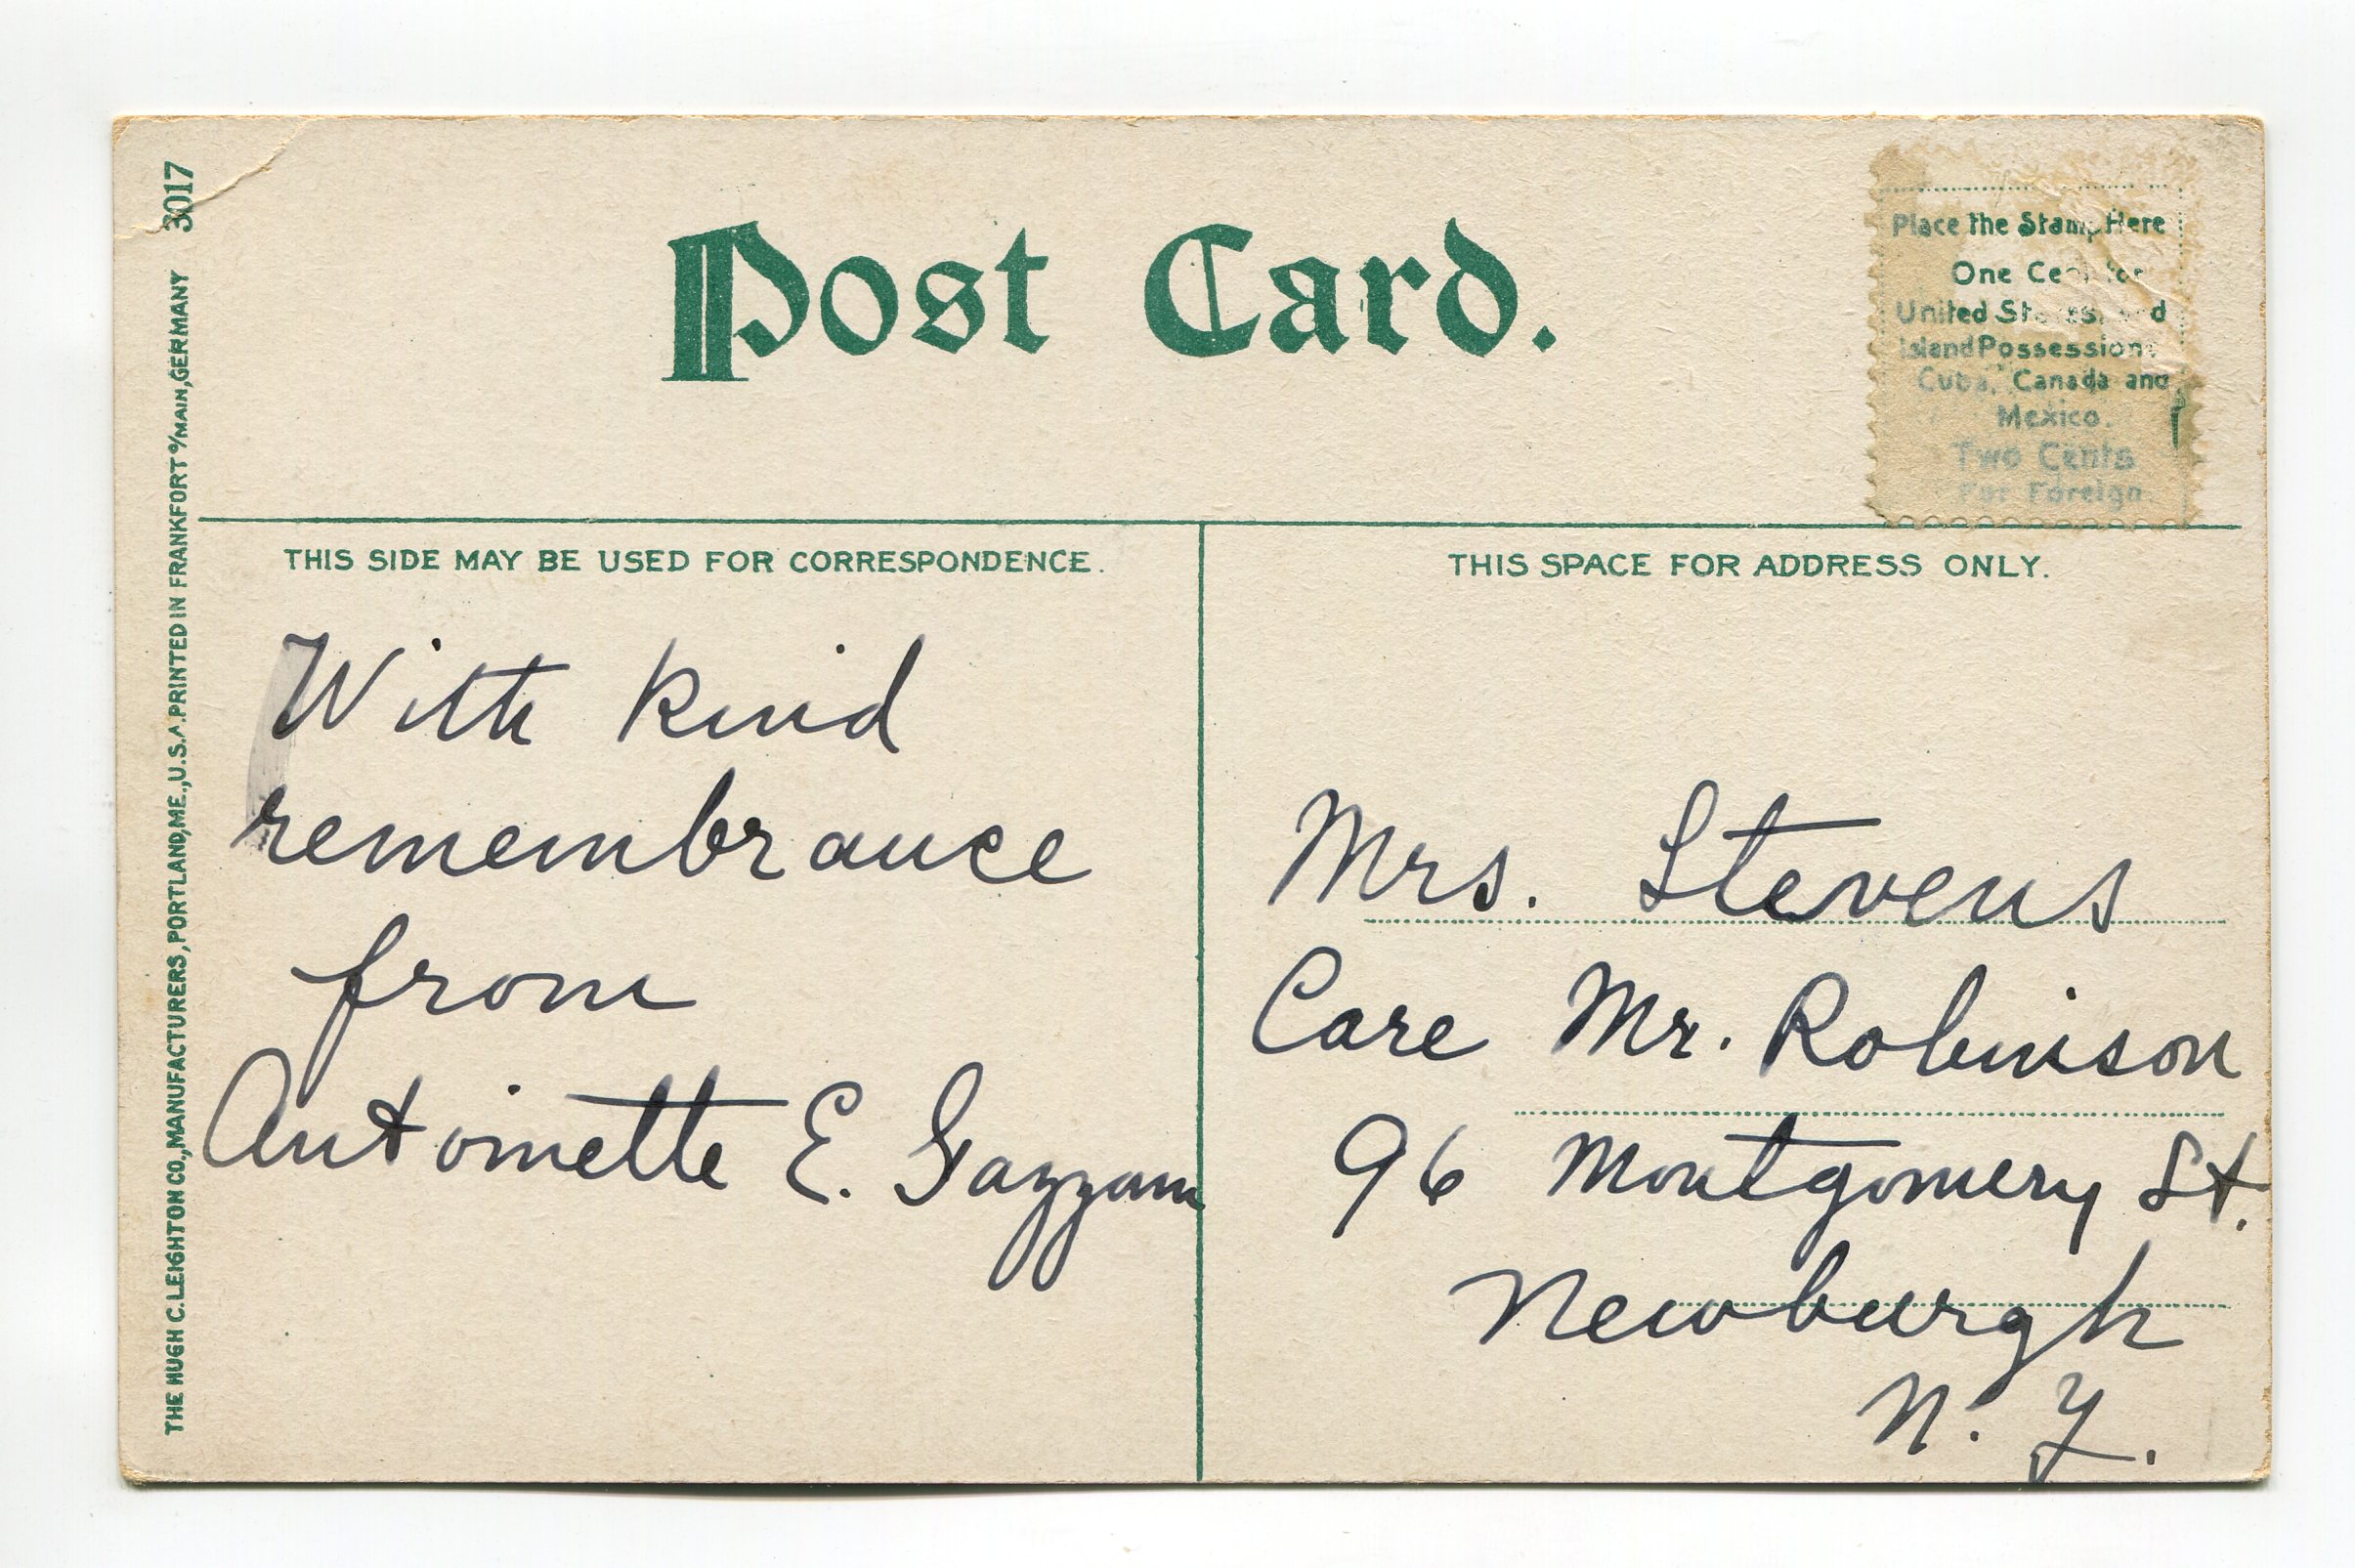 THE HUGH C. LEIGHTON CO., MANUFACTURERS, PORTLAND, ME., U.S.A. PRINTED IN FRANKFORT o/MAIN, GERMANY 3017
Post Card.
Place the Stamp Here
One Cent for
United States, and
Island Possessions
Cuba, Canada and
Mexico.
Two Cents
For Foreign
THIS SIDE MAY BE USED FOR CORRESPONDENCE.
With kind
remembrance
from
Antoinette E. Gazzam
THIS SPACE FOR ADDRESS ONLY.
Mrs. Stevens
Care Mr. Robinson
96 Montgomery St.
Newburgh
N. Y.